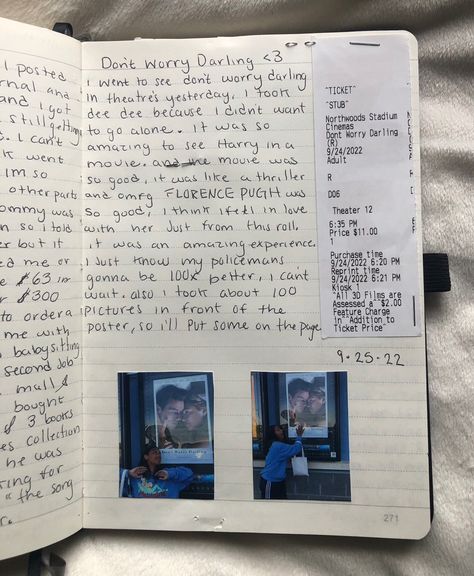 I posted
rnal and
and I got
still getting
. I can't
k went
im so
other parts
ommy was
n so I told
er but it
ed me or
e $63 in
r $300
to order a
me with
babysitting
second job
mall &
bought
& 3 books
es collection
he was
ing for
"the song
r.
Don't Worry Darling <3
I went to see don't worry darling
in theatres yesterday, I took
dee dee because I didn't want
to go alone. it was so
amazing to see Harry in a
movie. and the movie was
so good, it was like a thriller
and omfg FLORENCE PUGH was
so good, I think I fell in love
with her Just from this roll.
it was an amazing experience.
I Just know my policemans
gonna be 100x better, I can't
wait. also I took about 100
pictures in front of the
poster, so i'll put some on the page
"TICKET"
"STUB"
Northwoods Stadium
Cinemas
Dont Worry Darling
(R)
9/24/2022
Adult
R
D06
Theater 12
6:35 PM
Price $11.00
1
Purchase time
9/24/2022 6:20 PM
Reprint time
9/24/2022 6:21 PM
Kiosk 1
"All 3D Films are
Assessed a $2.00
Feature Charge
in Addition to
Ticket Price"
9.25.22
271